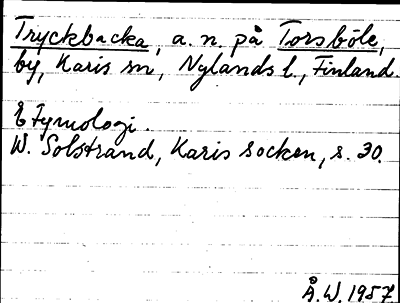 Tryckbacka, a. n. på Torsböle,
by, Karis sn, Nylands l., Finland.
Etymologi.
W. Solstrand, Karis socken, s. 30.
Å. W. 1957